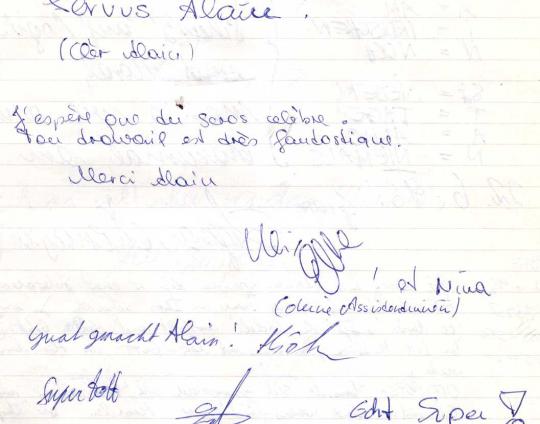 Servus Alain !
(Cher Alain)
J'espère que du seras celèbre.
Ton drawail est drès fandastique.
Merci Alain
! et Nina
(deine Assistendinnen)
guat gmacht Alain !
Super toll
Echt Super